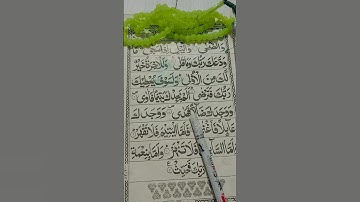 وَالضُّحَىٰ وَالَّيْلِ
وَدَّعَكَ رَبُّكَ وَمَا قَلَىٰ وَلَلْاٰخِرَةُ خَيْرٌ
لَّكَ مِنَ الْاُوْلَىٰ وَلَسَوْفَ يُعْطِيْكَ
رَبُّكَ فَتَرْضَىٰ اَلَمْ يَجِدْكَ يَتِيْمًا فَاٰوٰى
وَوَجَدَكَ ضَآلًّا فَهَدٰى وَوَجَدَكَ
عَآئِلًا فَاَغْنٰى فَاَمَّا الْيَتِيْمَ فَلَا تَقْهَرْ
وَاَمَّا السَّآئِلَ فَلَا تَنْهَرْ وَاَمَّا بِنِعْمَةِ
رَبِّكَ فَحَدِّثْ